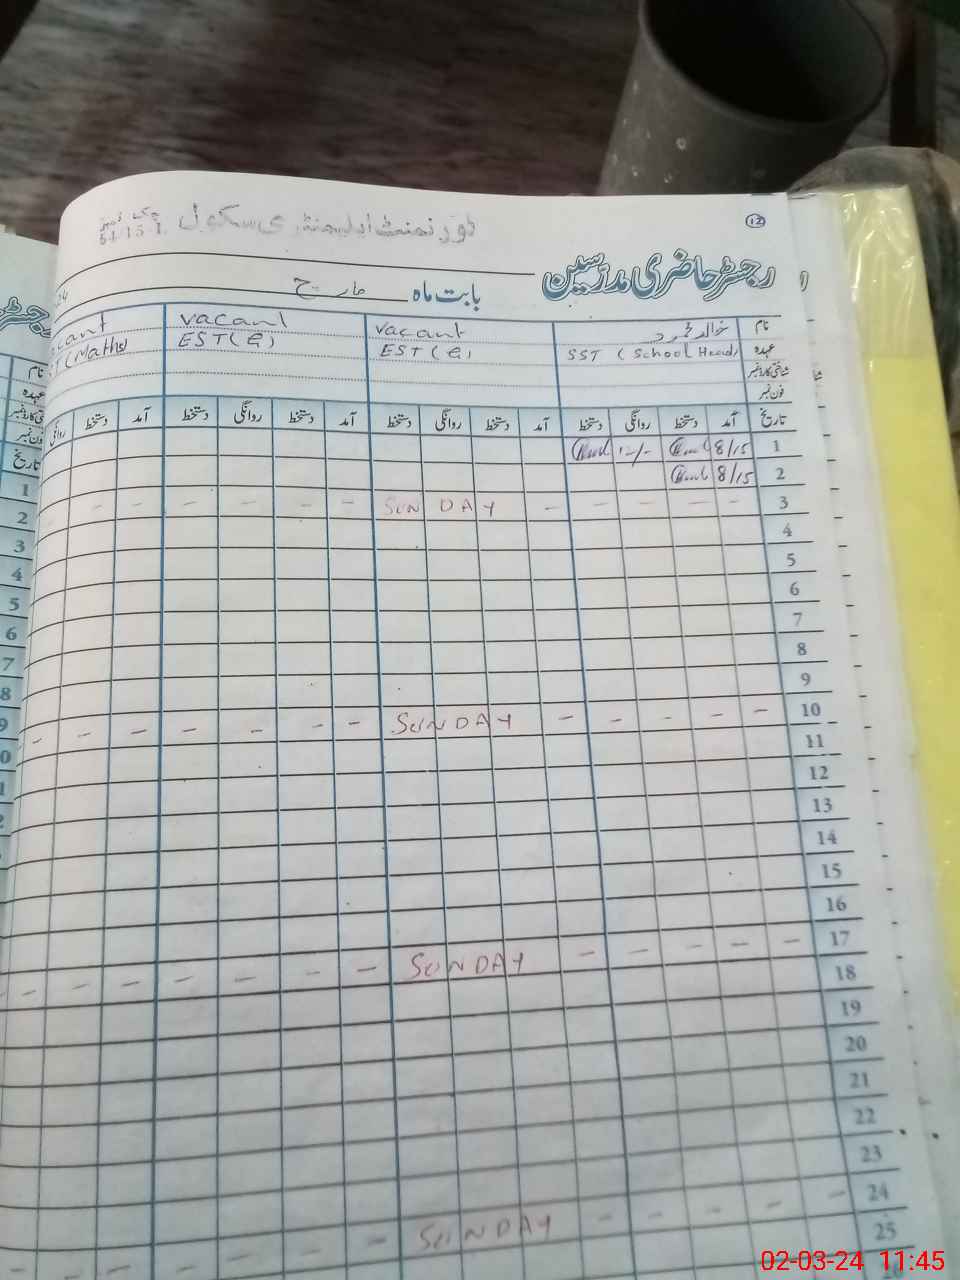 گورنمنٹ ایلیمنٹری سکول چک نمبر
12
رجسٹر حاضری مدرسین
بابت ماہ مارچ
نام خالد محمود vacant vacant
عہدہ SST (School Head) EST(e) EST(e) (Maths)
شناختی کارڈ نمبر
فون نمبر
تاریخ آمد دستخط روانگی دستخط آمد دستخط روانگی دستخط آمد دستخط روانگی دستخط آمد دستخط
1 8/15 12/-
2 8/15
3 - - - - - SUNDAY - - - - - -
4
5
6
7
8
9
10 - - - - - SUNDAY - - - - - - -
11
12
13
14
15
16
17 - - - - - SUNDAY - - - - - - -
18
19
20
21
22
23
24 - - - - - SUNDAY - - - - -
25
نام
عہدہ
تاریخ
1
2
3
4
5
6
7
8
9
02-03-24 11:45